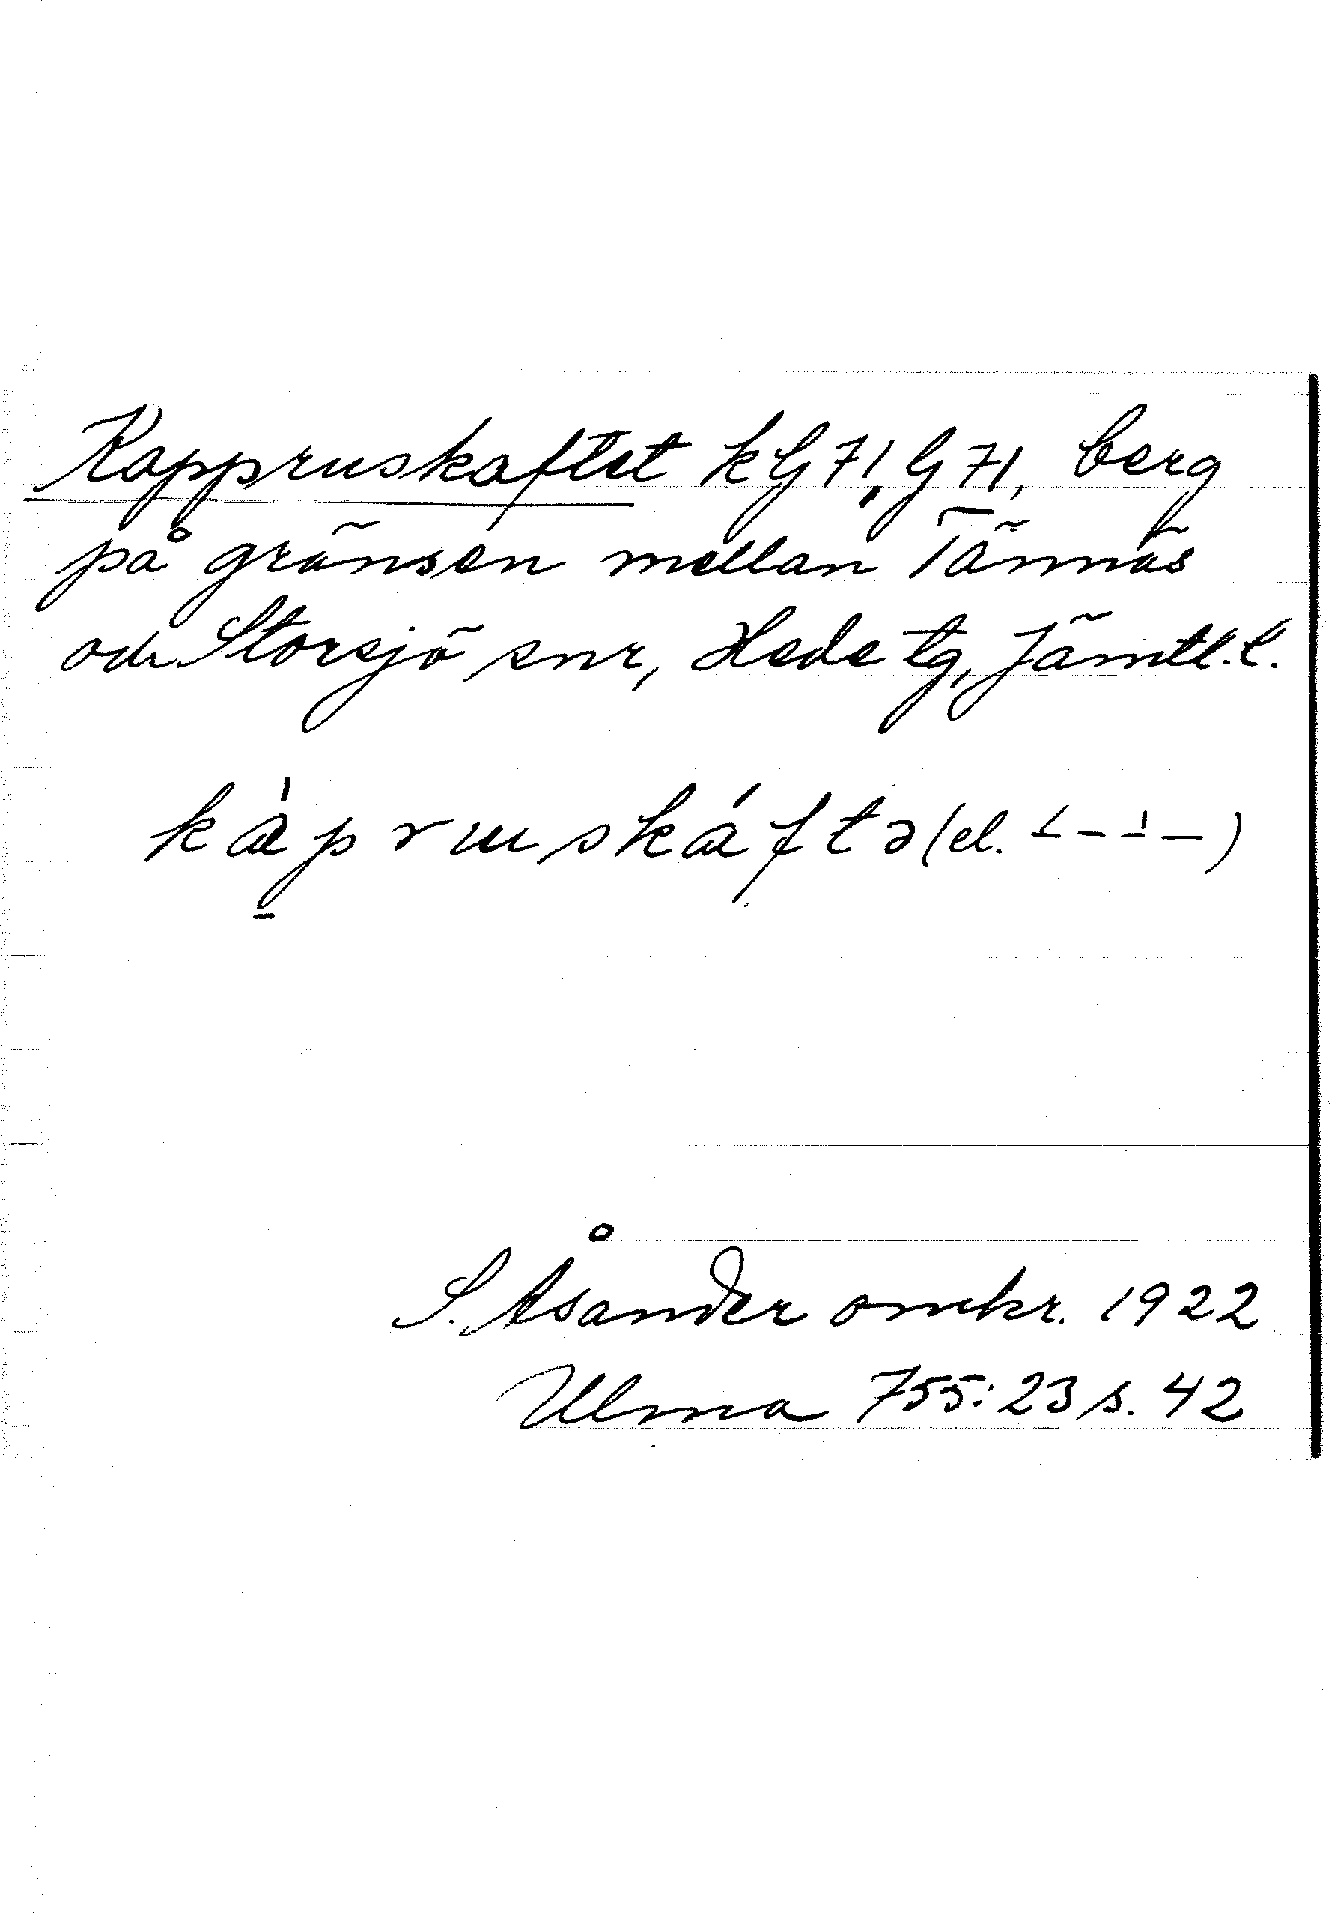 Koppruskaftet kG71, G71, berg
på gränsen mellan Tännäs
och Storsjö snr, Hede tg, Jämtl. l.
kàpruskáftə (el. ⊥ – ⊥ –)
S. Åsander omkr. 1922
Ulma 755:23 s. 42